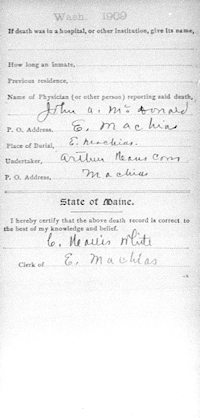 Wash. 1909
If death was in a hospital, or other institution, give its name,
How long an inmate,
Previous residence,
Name of Physician (or other person) reporting said death,
John A. McDonald
P. O. Address, E. Machias
Place of Burial, E. Machias.
Undertaker, Arthur Hanscom
P. O. Address, Machias
State of Maine.
I hereby certify that the above death record is correct to
the best of my knowledge and belief.
C. Hollis White
Clerk of E. Machias